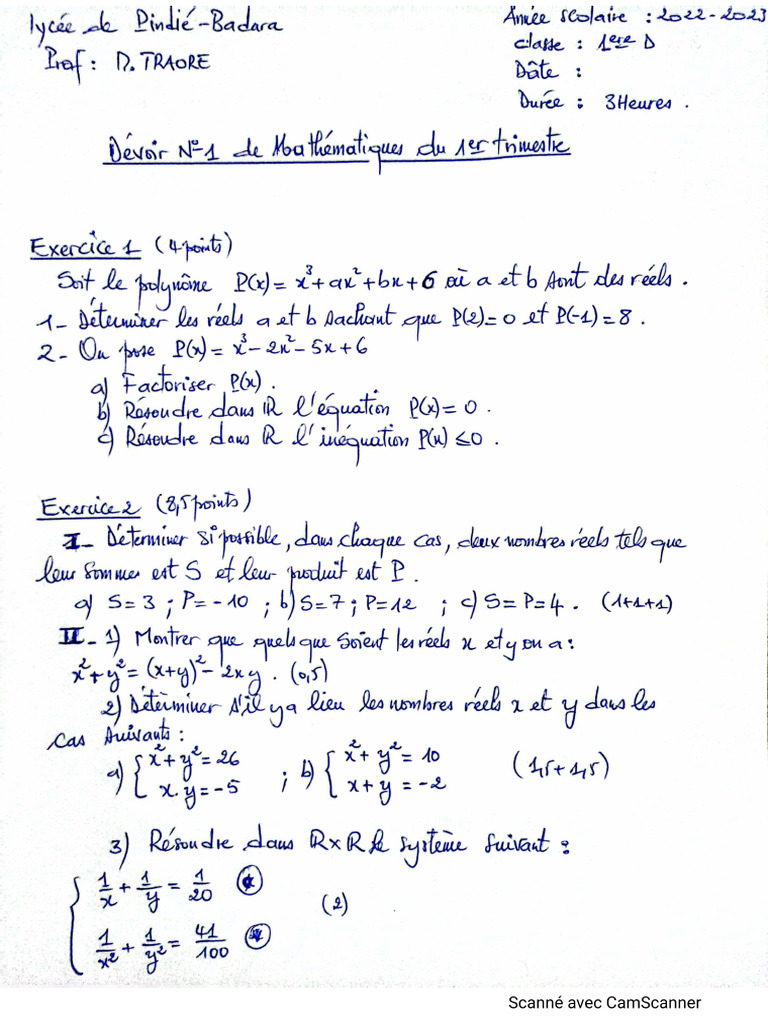 lycée de Pindié-Badara
Année scolaire : 2022-2023
Prof : D. TRAORE
classe : 1ere D
Dâte :
Durée : 3Heures.
Dévoir N°1 de Mathématiques du 1er trimestre
Exercice 1 (4 points)
Soit le polynôme P(x) = x³ + ax² + bx + 6 où a et b sont des réels.
1- Déterminer les réels a et b sachant que P(2) = 0 et P(-1) = 8.
2- On pose P(x) = x³ - 2x² - 5x + 6
a) Factoriser P(x).
b) Résoudre dans ℝ l'équation P(x) = 0.
c) Résoudre dans ℝ l'inéquation P(x) ≤ 0.
Exercice 2 (8,5 points)
I- Déterminer si possible, dans chaque cas, deux nombres réels tels que
leur sommes est S et leur produit est P.
a) S = 3 ; P = -10 ; b) S = 7 ; P = 12 ; c) S = P = 4. (1+1+1)
II- 1) Montrer que quels que soient les réels x et y on a :
x² + y² = (x+y)² - 2xy. (0,5)
2) Déterminer s'il y a lieu les nombres réels x et y dans les
cas suivants :
a) { x² + y² = 26 ; b) { x² + y² = 10 (1,5+1,5)
x.y = -5 x + y = -2
3) Résoudre dans ℝ×ℝ le système suivant :
{ 1/x + 1/y = 1/20
(2)
1/x² + 1/y² = 41/100
Scanné avec CamScanner